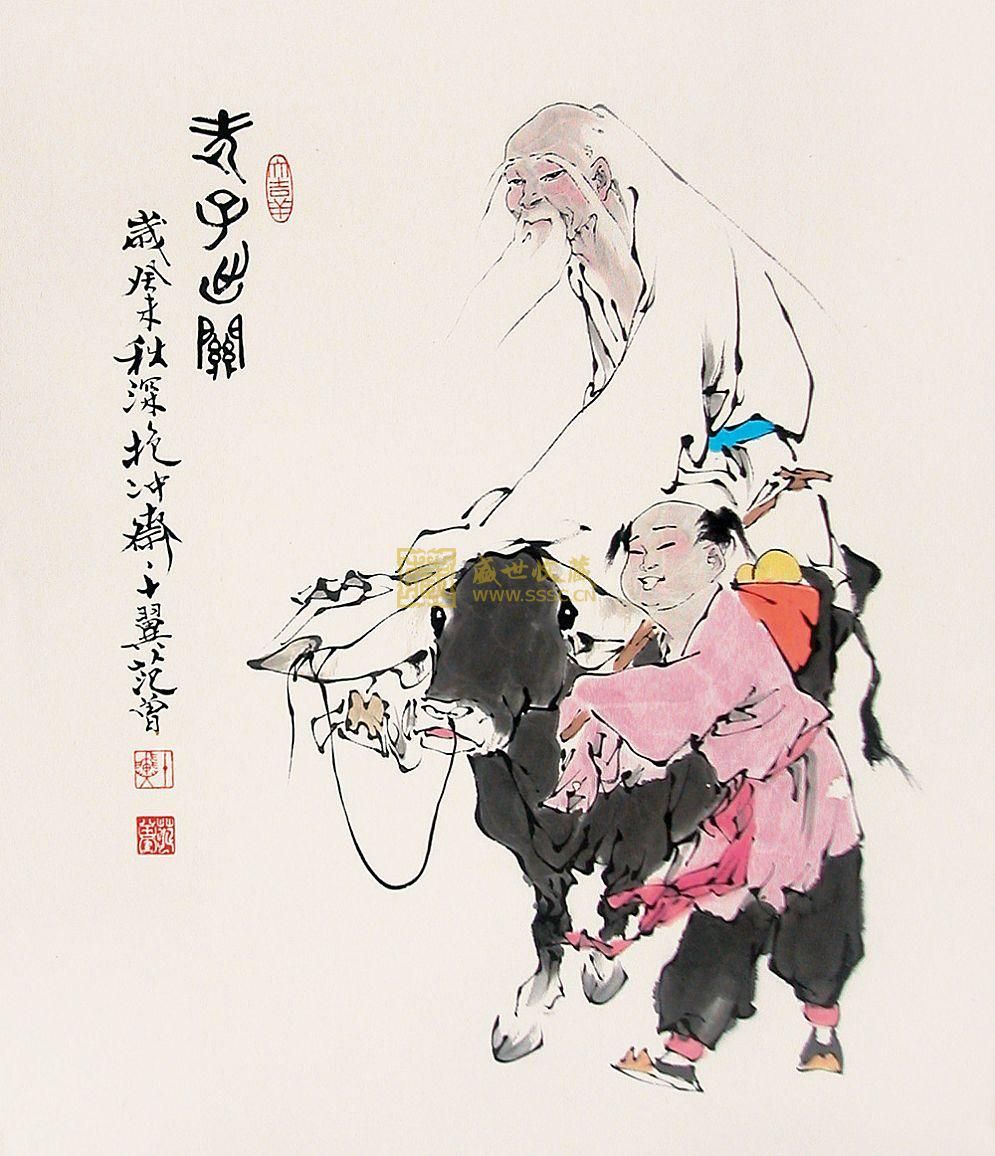 老子出關
大吉羊
歲癸未秋深抱冲齋十翼范曾
盛世收藏
WWW.SSSC.CN